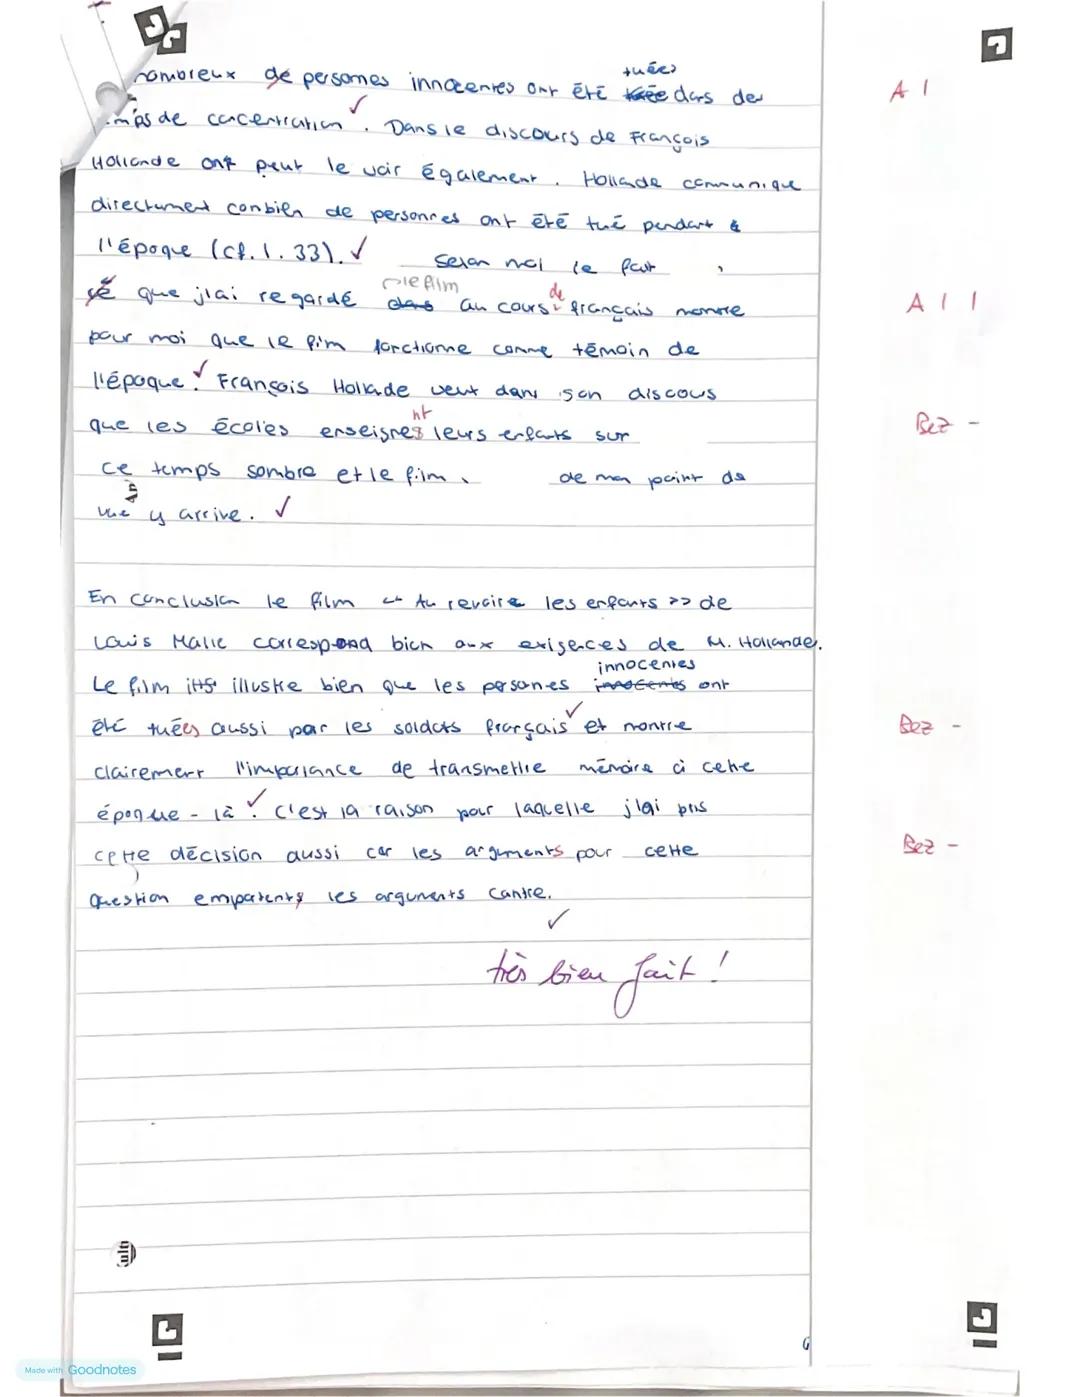 nombreux de personnes innocentes ont été tuées dans des A I
camps de concentration ✓. Dans le discours de François
Hollande ont peut le voir également. Hollande communique
directument combien de personnes ont été tué pendant
l'époque (cf. l. 33). ✓ Selon moi le fait,
que j'ai regardé le film au cours de français montre A I I
pour moi que le film fonctionne comme témoin de
l'époque. ✓ François Hollade veut dans son discous
que les écoles enseignent leurs enfants sur Bez -
ce temps sombre et le film, de mon point de
vue y arrive. ✓
En conclusion le film << Au revoire les enfants >> de
Louis Malle correspond bien aux exigences de M. Hollande.
Le film illustre bien que les personnes innocentes ont
été tuées aussi par les soldats français ✓ et montre Bez -
clairement l'importance de transmettre mémoire à cette
époque - là ✓. C'est la raison pour laquelle j'ai pris
cette décision aussi car les arguments pour cette Bez -
question emportent les arguments contre.
✓
très bien fait !
Made with Goodnotes